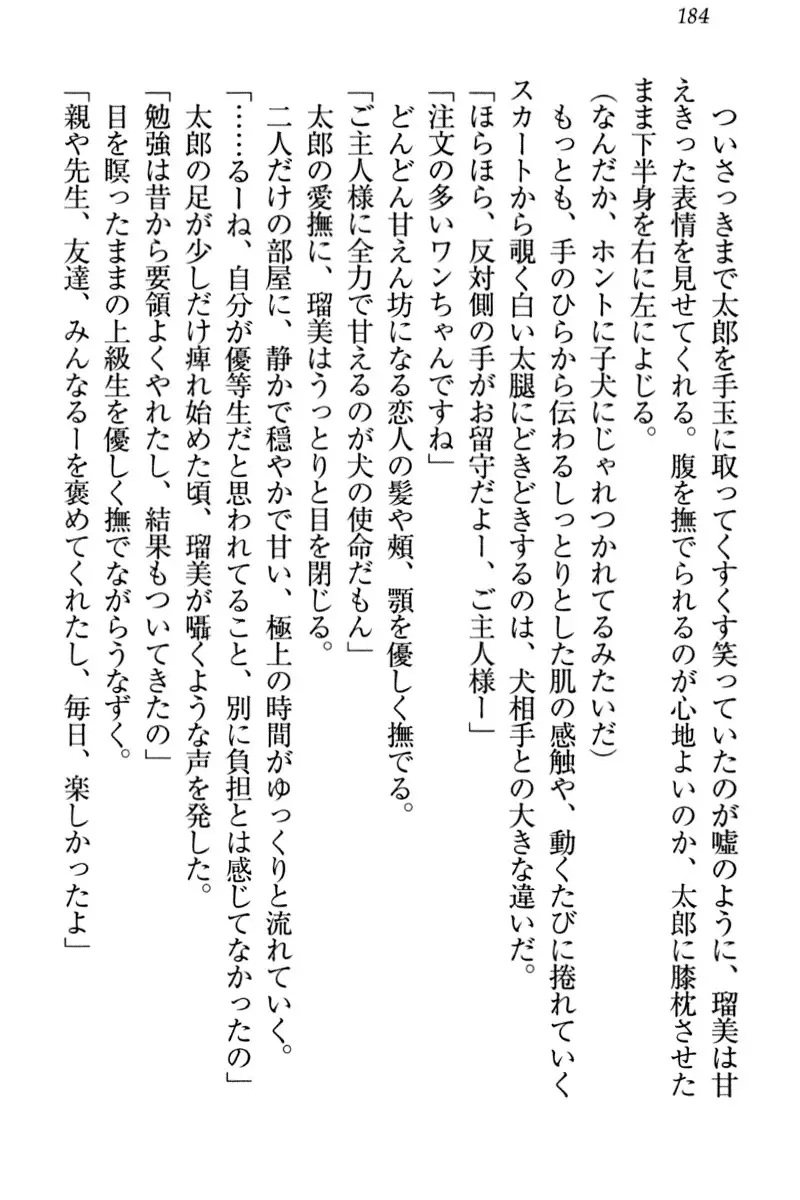 184
ついさっきまで太郎を手玉に取ってくすくす笑っていたのが嘘のように、瑠美は甘
えきった表情を見せてくれる。腹を撫でられるのが心地よいのか、太郎に膝枕させた
まま下半身を右に左によじる。
(なんだか、ホントに子犬にじゃれつかれてるみたいだ)
もっとも、手のひらから伝わるしっとりとした肌の感触や、動くたびに捲れていく
スカートから覗く白い太腿にどきどきするのは、犬相手との大きな違いだ。
「ほらほら、反対側の手がお留守だよー、ご主人様ー」
「注文の多いワンちゃんですね」
どんどん甘えん坊になる恋人の髪や頰、顎を優しく撫でる。
「ご主人様に全力で甘えるのが犬の使命だもん」
太郎の愛撫に、瑠美はうっとりと目を閉じる。
二人だけの部屋に、静かで穏やかで甘い、極上の時間がゆっくりと流れていく。
「……るーね、自分が優等生だと思われてること、別に負担とは感じてなかったの」
太郎の足が少しだけ痺れ始めた頃、瑠美が囁くような声を発した。
「勉強は昔から要領よくやれたし、結果もついてきたの」
目を瞑ったままの上級生を優しく撫でながらうなずく。
「親や先生、友達、みんなるーを褒めてくれたし、毎日、楽しかったよ」